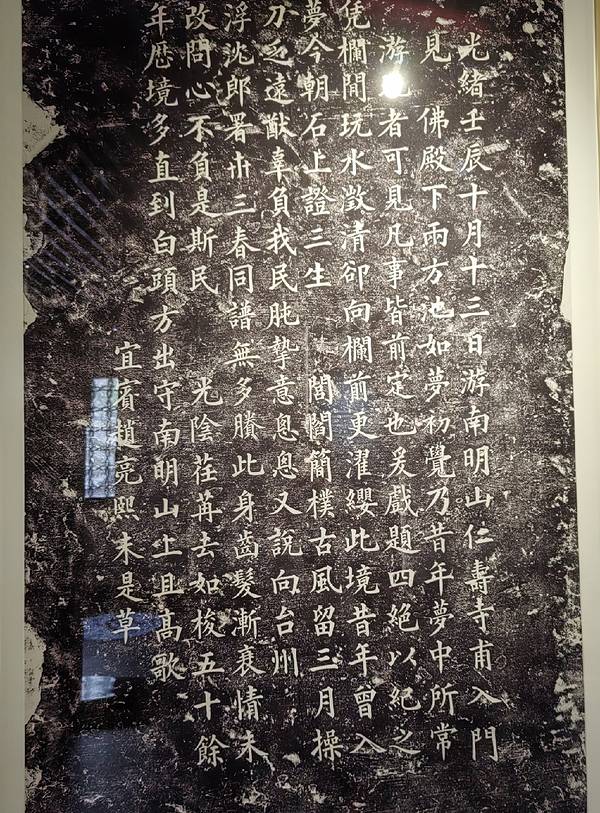 光緒壬辰十月十三日游南明山仁壽寺甫入門
見 佛殿下兩方池如夢初覺乃昔年夢中所常
游者可見凡事皆前定也爰戲題四絕以紀之
凭欄閒玩水澂清卻向欄前更濯纓此境昔年曾入
夢今朝石上證三生 閭閻簡樸古風留三月操
刀乏遠猷辜負我民肫摯意悤悤又說向台州
浮沈郎署卅三春同譜無多賸此身齒髮漸衰情未
改問心不負是斯民 光陰荏苒去如梭五十餘
年歷境多直到白頭方出守南明山上且高歌
宜賓趙亮熙未是草